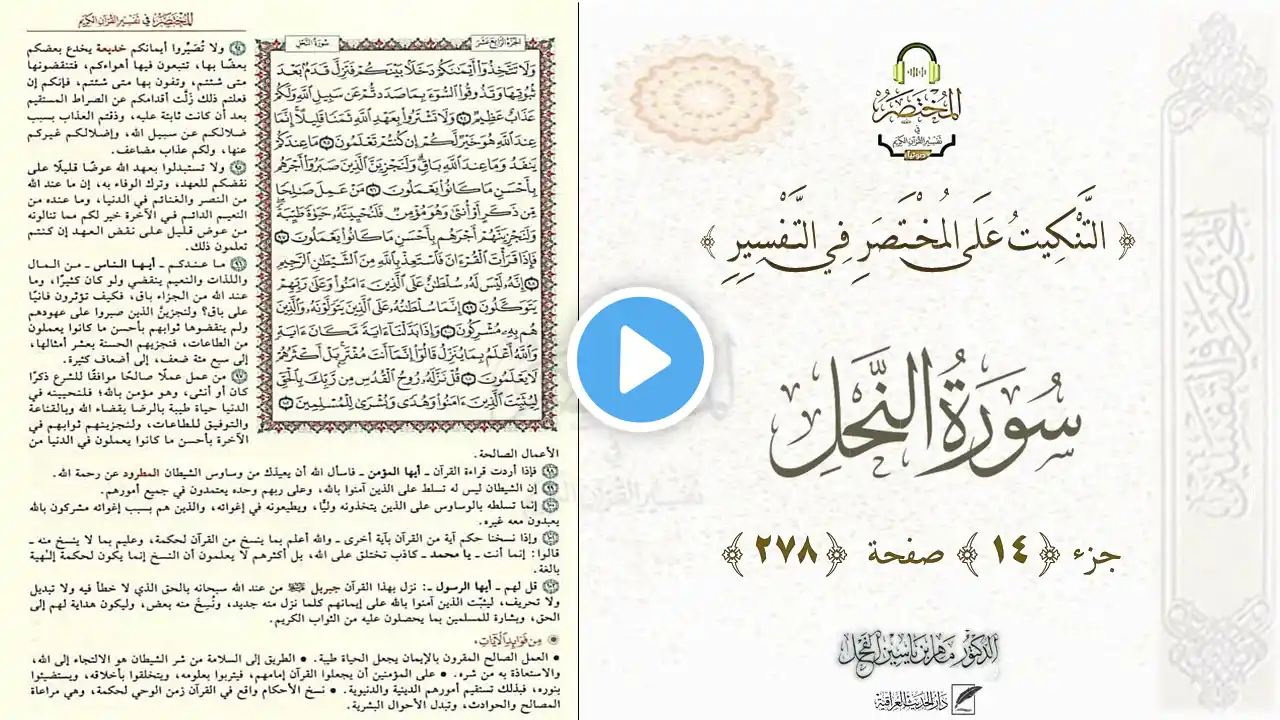 المختصر في تفسير القرآن الكريم
الجزء الرابع عشر
سورة النحل
وَلَا تَتَّخِذُوٓاْ أَيۡمَٰنَكُمۡ دَخَلَۢا بَيۡنَكُمۡ فَتَزِلَّ قَدَمُۢ بَعۡدَ
ثُبُوتِهَا وَتَذُوقُواْ ٱلسُّوٓءَ بِمَا صَدَدتُّمۡ عَن سَبِيلِ ٱللَّهِ وَلَكُمۡ
عَذَابٌ عَظِيمٞ ٩٤ وَلَا تَشۡتَرُواْ بِعَهۡدِ ٱللَّهِ ثَمَنٗا قَلِيلًاۚ إِنَّمَا
عِندَ ٱللَّهِ هُوَ خَيۡرٞ لَّكُمۡ إِن كُنتُمۡ تَعۡلَمُونَ ٩٥ مَا عِندَكُمۡ
يَنفَدُ وَمَا عِندَ ٱللَّهِ بَاقٖۗ وَلَنَجۡزِيَنَّ ٱلَّذِينَ صَبَرُوٓاْ أَجۡرَهُم
بِأَحۡسَنِ مَا كَانُواْ يَعۡمَلُونَ ٩٦ مَنۡ عَمِلَ صَٰلِحٗا
مِّن ذَكَرٍ أَوۡ أُنثَىٰ وَهُوَ مُؤۡمِنٞ فَلَنُحۡيِيَنَّهُۥ حَيَوٰةٗ طَيِّبَةٗۖ
وَلَنَجۡزِيَنَّهُمۡ أَجۡرَهُم بِأَحۡسَنِ مَا كَانُواْ يَعۡمَلُونَ ٩٧
فَإِذَا قَرَأۡتَ ٱلۡقُرۡءَانَ فَٱسۡتَعِذۡ بِٱللَّهِ مِنَ ٱلشَّيۡطَٰنِ ٱلرَّجِيمِ
٩٨ إِنَّهُۥ لَيۡسَ لَهُۥ سُلۡطَٰنٌ عَلَى ٱلَّذِينَ ءَامَنُواْ وَعَلَىٰ رَبِّهِمۡ
يَتَوَكَّلُونَ ٩٩ إِنَّمَا سُلۡطَٰنُهُۥ عَلَى ٱلَّذِينَ يَتَوَلَّوۡنَهُۥ وَٱلَّذِينَ
هُم بِهِۦ مُشۡرِكُونَ ١٠٠ وَإِذَا بَدَّلۡنَآ ءَايَةٗ مَّكَانَ ءَايَةٖ
وَٱللَّهُ أَعۡلَمُ بِمَا يُنَزِّلُ قَالُوٓاْ إِنَّمَآ أَنتَ مُفۡتَرِۭۚ بَلۡ أَكۡثَرُهُمۡ
لَا يَعۡلَمُونَ ١٠١ قُلۡ نَزَّلَهُۥ رُوحُ ٱلۡقُدُسِ مِن رَّبِّكَ بِٱلۡحَقِّ
لِيُثَبِّتَ ٱلَّذِينَ ءَامَنُواْ وَهُدٗى وَبُشۡرَىٰ لِلۡمُسۡلِمِينَ ١٠٢
٩٤ ولا تُصَيِّروا أيمانكم خديعة يخدع بعضكم
بعضًا بها، تتبعون فيها أهواءكم، فتنقضونها
متى شئتم، وتفون بها متى شئتم، فإنكم إن
فعلتم ذلك زلَّت أقدامكم عن الصراط المستقيم
بعد أن كانت ثابتة عليه، وذقتم العذاب بسبب
ضلالكم عن سبيل الله، وإضلالكم غيركم
عنها، ولكم عذاب مضاعف.
٩٥ ولا تستبدلوا بعهد الله عوضًا قليلًا على
نقضكم للعهد، وترك الوفاء به، إن ما عند الله
من النصر والغنائم في الدنيا، وما عنده من
النعيم الدائم في الآخرة خير لكم مما تنالونه
من عوض قليل على نقض العهد إن كنتم
تعلمون ذلك.
٩٦ ما عندكم ـ أيها الناس ـ من المال
واللذات والنعيم ينقضي ولو كان كثيرًا، وما
عند الله من الجزاء باق، فكيف تؤثرون فانيًا
على باق؟ ولنجزينَّ الذين صبروا على عهودهم
ولم ينقضوها ثوابهم بأحسن ما كانوا يعملون
من الطاعات، فنجزيهم الحسنة بعشر أمثالها،
إلى سبع مئة ضعف، إلى أضعاف كثيرة.
٩٧ من عمل عملًا صالحًا موافقًا للشرع ذكرًا
كان أو أنثى، وهو مؤمن بالله، فلنحيينه في
الدنيا حياة طيبة بالرضا بقضاء الله وبالقناعة
والتوفيق للطاعات، ولنجزينهم ثوابهم في
الآخرة بأحسن ما كانوا يعملون في الدنيا من
الأعمال الصالحة.
٩٨ فإذا أردت قراءة القرآن ـ أيها المؤمن ـ فاسأل الله أن يعيذك من وساوس الشيطان المطرود عن رحمة الله.
٩٩ إن الشيطان ليس له تسلط على الذين آمنوا بالله، وعلى ربهم وحده يعتمدون في جميع أمورهم.
١٠٠ إنما تسلطه بالوساوس على الذين يتخذونه وليًّا، ويطيعونه في إغوائه، والذين هم بسبب إغوائه مشركون بالله
يعبدون معه غيره.
١٠١ وإذا نسخنا حكم آية من القرآن بآية أخرى ـ والله أعلم بما ينسخ من القرآن لحكمة، وعليم بما لا ينسخ منه ـ
قالوا: إنما أنت ـ يا محمد ـ كاذب تختلق على الله، بل أكثرهم لا يعلمون أن النسخ إنما يكون لحكمة إلٰهية
بالغة.
١٠٢ قل لهم ـ أيها الرسول ـ: نزل بهذا القرآن جبريل ﷺ من عند الله سبحانه بالحق الذي لا خطأ فيه ولا تبديل
ولا تحريف، ليثبّت الذين آمنوا بالله على إيمانهم كلما نزل منه جديد، ونُسِخ منه بعض، وليكون هداية لهم إلى
الحق، وبشارة للمسلمين بما يحصلون عليه من الثواب الكريم.
مِن فَوَائِدِ الآيَاتِ
• العمل الصالح المقرون بالإيمان يجعل الحياة طيبة. • الطريق إلى السلامة من شر الشيطان هو الالتجاء إلى الله،
والاستعاذة به من شره. • على المؤمنين أن يجعلوا القرآن إمامهم، فيتربوا بعلومه، ويتخلقوا بأخلاقه، ويستضيئوا
بنوره، فبذلك تستقيم أمورهم الدينية والدنيوية. • نسخ الأحكام واقع في القرآن زمن الوحي لحكمة، وهي مراعاة
المصالح والحوادث، وتبدل الأحوال البشرية.
المختصر
في
تفسير القرآن الكريم
صوتيًا
﴿ التَّنْكِيتُ عَلَى المُخْتَصَرِ فِي التَّفْسِيرِ ﴾
سُورَةُ النَّحْلِ
جزء ﴿١٤﴾ صفحة ﴿٢٧٨﴾
الدكتور ماهر بن ياسين الفحل
دار الحديث العراقية